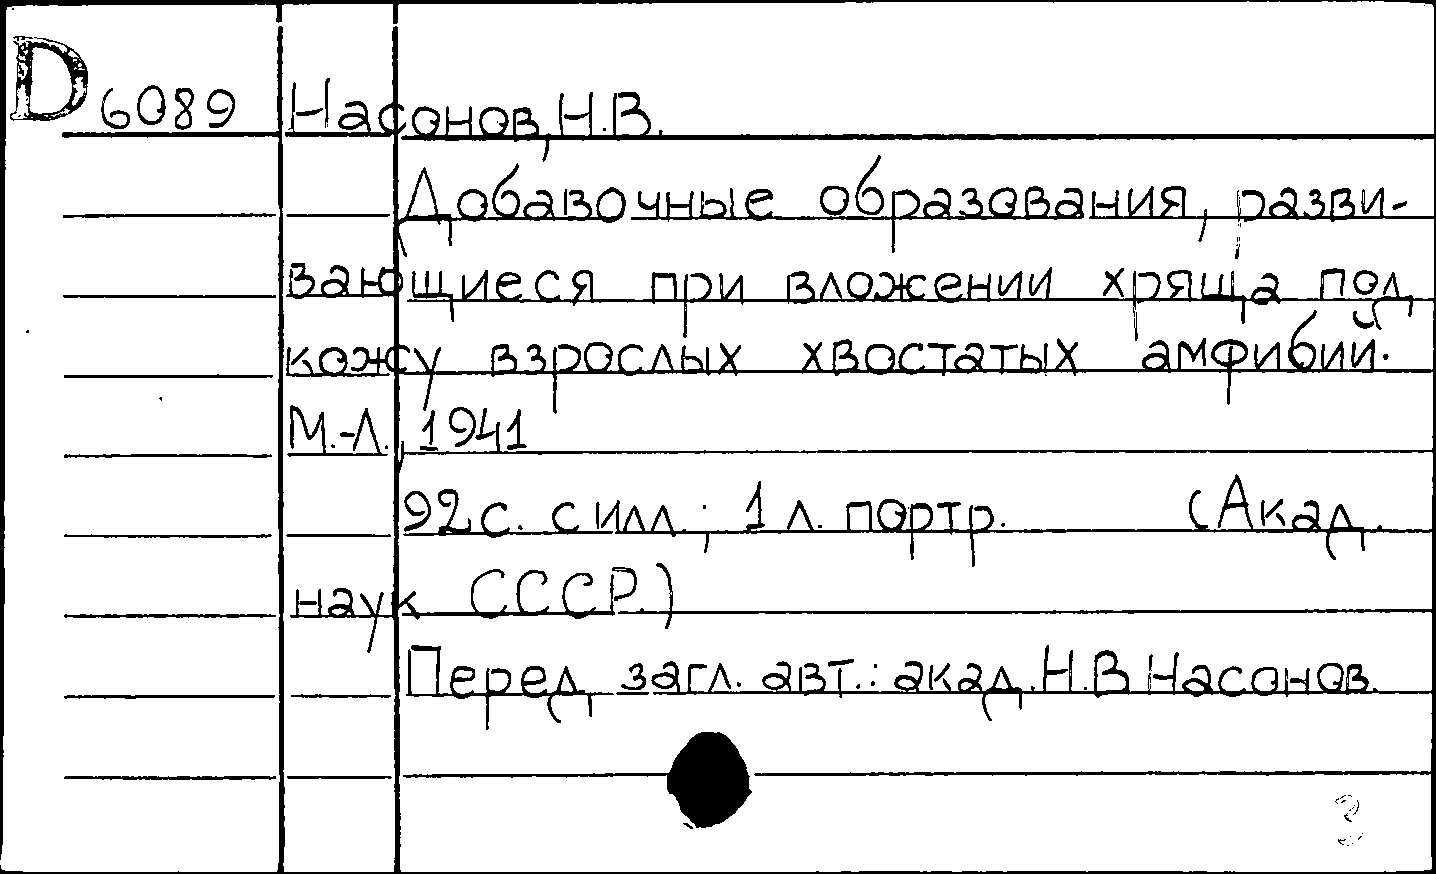 D 6089 Насонов, Н.В.
Добавочные образования, разви-
вающиеся при вложении хряща под
кожу взрослых хвостатых амфибий.
М.-Л., 1941
92 с. с илл.; 1 л. портр. (Акад.
наук СССР.)
Перед загл. авт.: акад. Н.В Насонов.
3